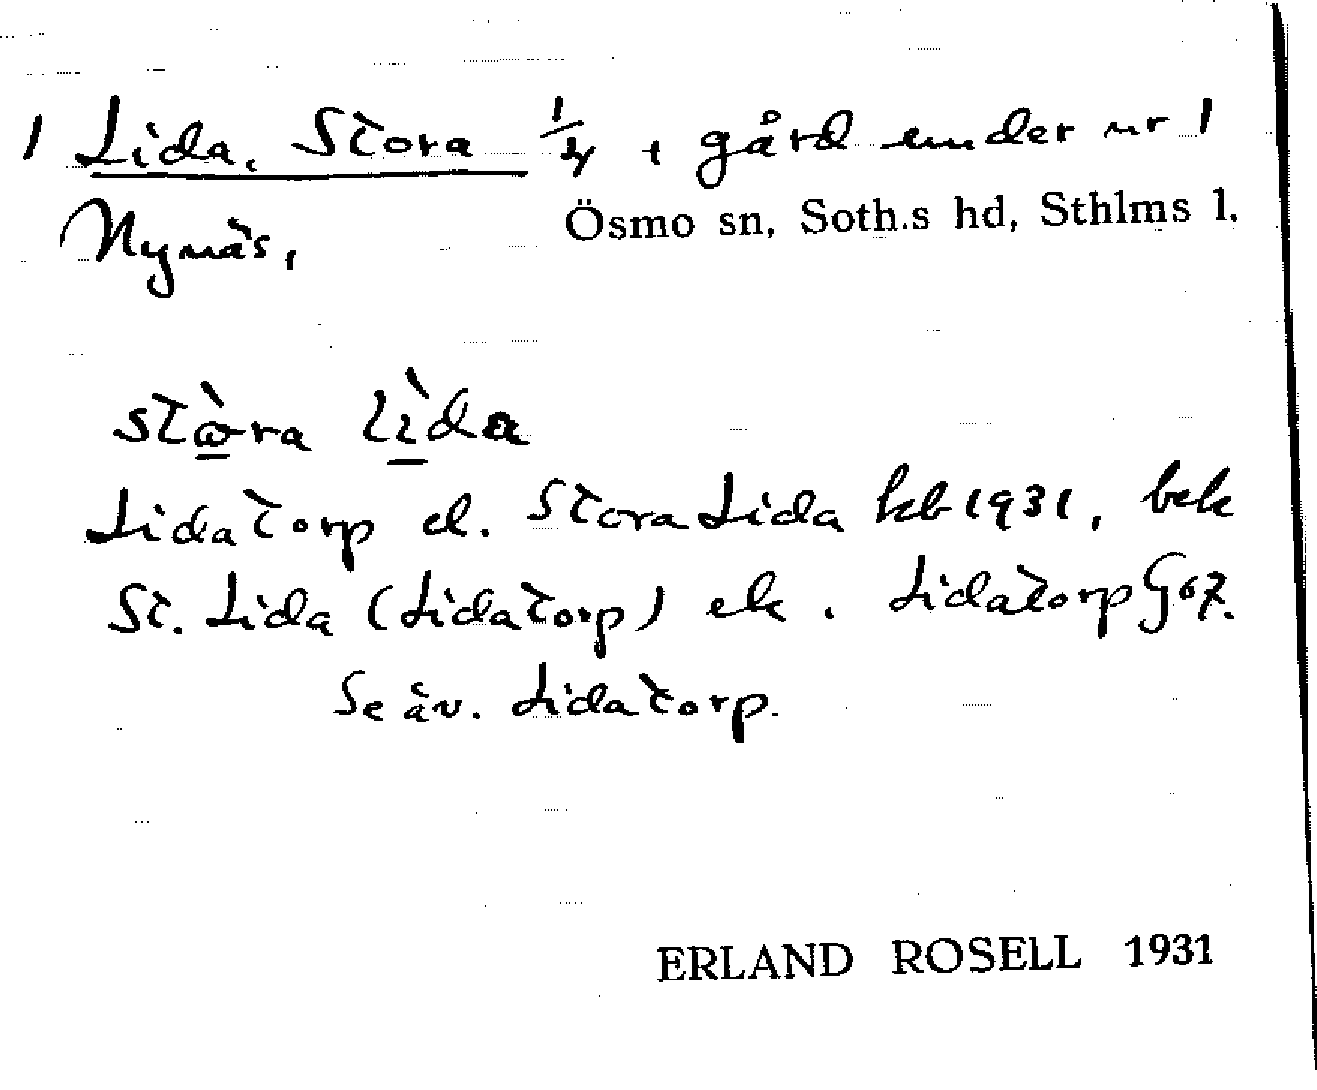 1 Lida, Stora 1/4 + gård under nr 1
Nymäs,
Ösmo sn, Soth.s hd, Sthlms l.
lìda
Lidatorp el. Stora Lida kb 1931, bek
St. Lida (Lidatorp) ek. Lidatorp
Se äv. Lidatorp.
ERLAND ROSELL 1931